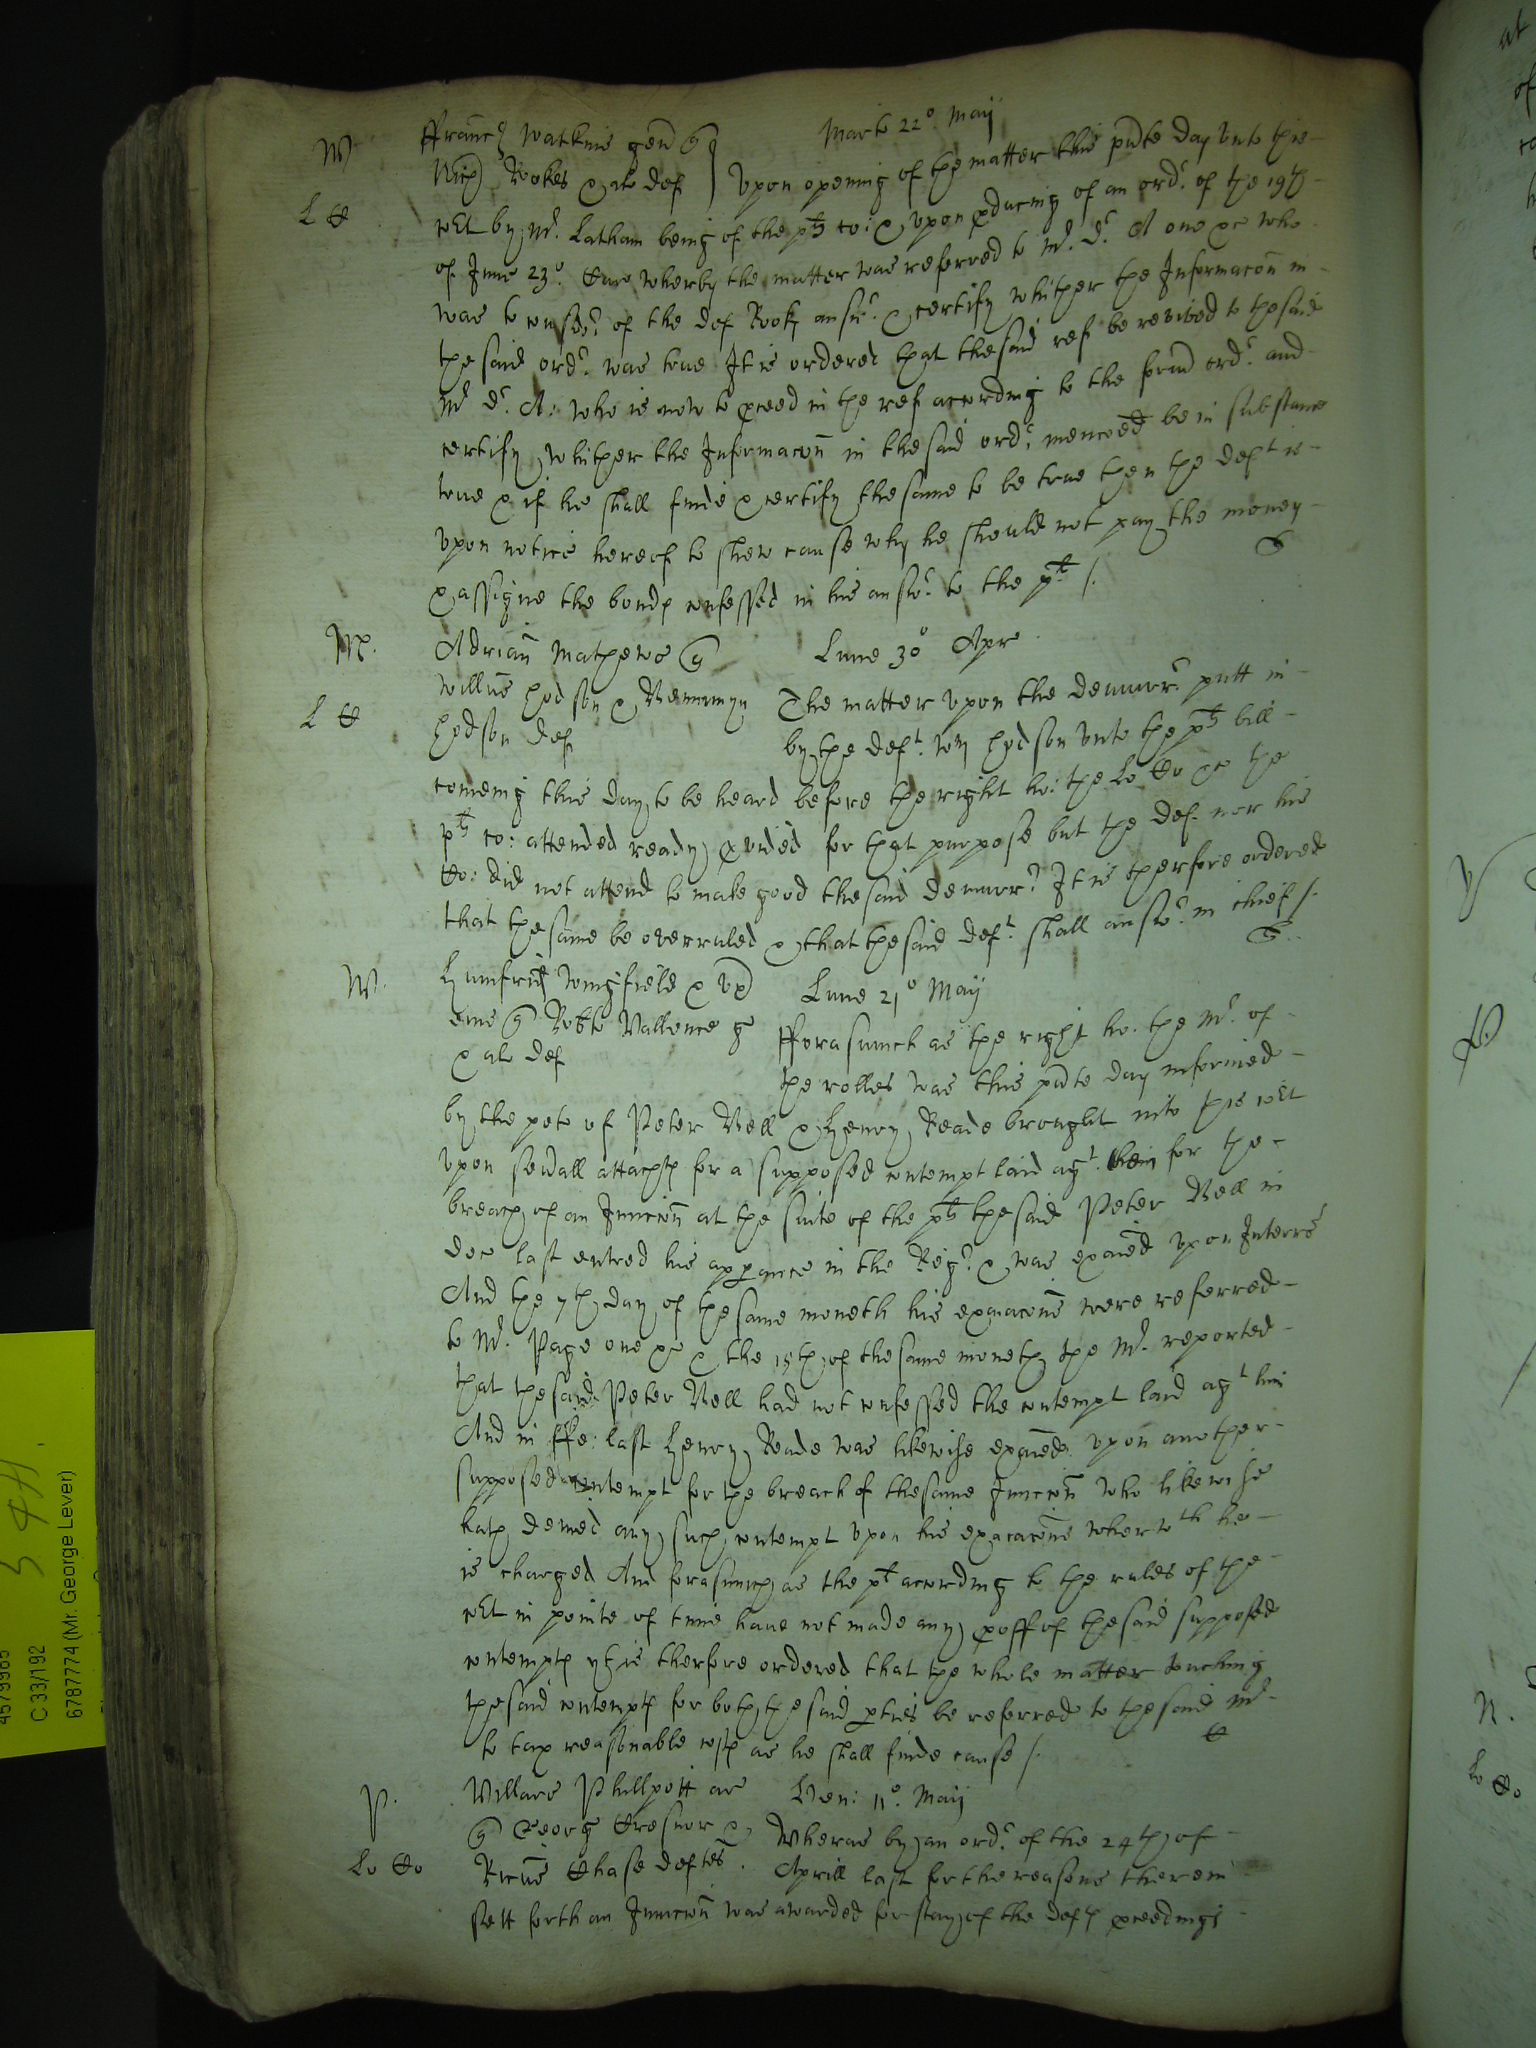 W Franc Watkins gen q Marte 22º Maij
Rich Rookes et al def Upon opening of the matter this pnte day unto this
L C co:rt by Mr. Latham being of the pts co: & upon pducing of an ordr. of the 19th
of June 23º. Eliz wherby the matter was referred to Mr. Dr. A one &c who
was to consider of the def Rook answr. & certify whither the Informacon in
the said ordr. was true It is ordered that the said ref be revived to the said
Mr Dr. A: who is now to pceed in the ref according to the form ordr. and
certify whither the Informacon in the said ordr. menconed be in substance
true & if he shall finde & certify the same to be true then the deft is
upon notice hereof to shew cause why he should not pay the money
& assigne the bond confessed in his answr. to the pt /.
M. Adrian Mathewes q Lune 30º Apr
Willus Hodson & Beniamyn The matter upon the demurr. putt in
L C Hodson def by the deft. Wm Hodson unto the pts bill
comeing this day to be heard before the right ho: the Lo Co &c the
pts co: attended ready pvided for that purpose but the def. nor his
Co: did not attend to make good the said demurr. It is therfore ordered
that the same be overruled & that the said deft. shall answr. in chief /.
W. Humfrid Wingfield & ux Lune 21º Maij
eius q Robto Vallence g Forasmuch as the right ho. the Mr. of
& al def the rolles was this pnte day informed
by the pets of Peter Nell & Henry Reade brought into this co:rt
upon sevall attach for a supposed contempt laid agt. them for the
breach of an Iniuncon at the suite of the pts the said Peter Nell in
Dec last entred his apparance in the Reg. & was exaied upon Interrs
And the 7th day of the same moneth his exaiacons were referred
to Mr. Page one &c & the 15th of the same moneth the Mr. reported
that the said Peter Nell had not confessed the contempt laid agt him
And in ffe: last Henry Reade was likewise exaied upon another
supposed contempt for the breach of the same Iniuncon who likewise
hath denied any such contempt upon his exaiacons wherwth he
is charged And forasmuch as the pt according to the rules of the
co:rt in pointe of time have not made any pooff of the said supposed
contempts yt is therfore ordered that the whole matter touching
the said contempts for both the said pties be referred to the said Mr
to tax reasonable costs as he shall finde cause /.
P. Phillpott ar Ven: 11º. Maij
q Georg & Wheras by an ordr. of the 24th of
Lo Co Ricus Chase deftes. Aprill last for the reasons therein
sett forth an Iniuncon was awarded for stay of the defs pceedings
C 33/192
6787774 (Mr. George Lever)